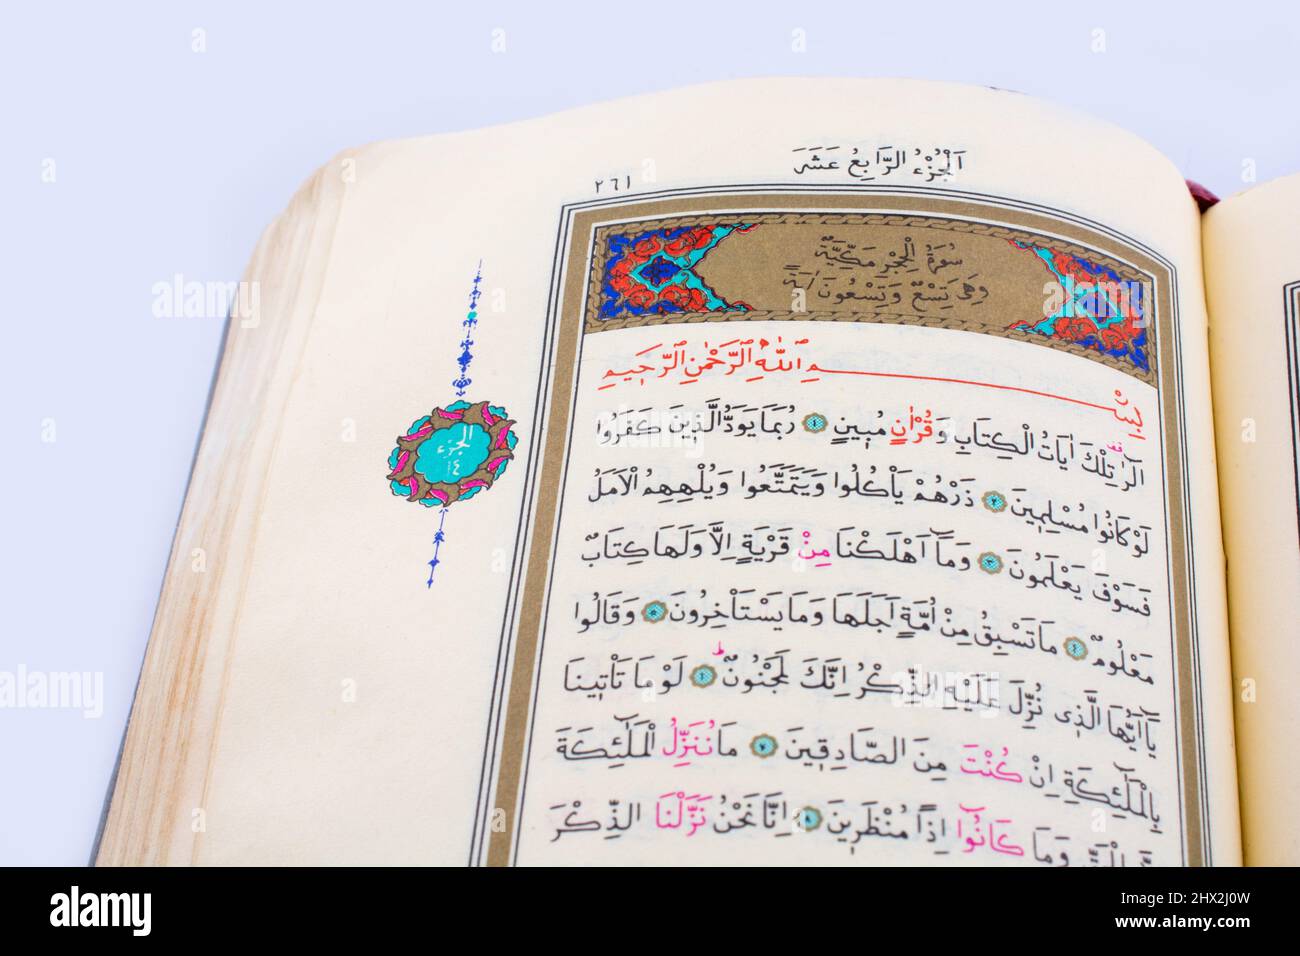 اَلْجُزْءُ الرَّابِعُ عَشَرَ
٢٦١
سُورَةُ الْحِجْرِ مَكِّيَّةٌ
وَهِىَ تِسْعٌ وَتِسْعُونَ اٰيَةً
بِسْمِ ٱللّٰهِ ٱلرَّحْمٰنِ ٱلرَّحِيمِ
الٓرٰ تِلْكَ اٰيَاتُ الْكِتَابِ وَقُرْاٰنٍ مُبِينٍ ١ رُبَمَا يَوَدُّ الَّذِينَ كَفَرُوا
لَوْ كَانُوا مُسْلِمِينَ ٢ ذَرْهُمْ يَأْكُلُوا وَيَتَمَتَّعُوا وَيُلْهِهِمُ الْاَمَلُ
فَسَوْفَ يَعْلَمُونَ ٣ وَمَٓا اَهْلَكْنَا مِنْ قَرْيَةٍ اِلَّا وَلَهَا كِتَابٌ
مَعْلُومٌ ٤ مَا تَسْبِقُ مِنْ اُمَّةٍ اَجَلَهَا وَمَا يَسْتَأْخِرُونَ ٥ وَقَالُوا
يَٓا اَيُّهَا الَّذِى نُزِّلَ عَلَيْهِ الذِّكْرُ اِنَّكَ لَمَجْنُونٌ ٦ لَوْ مَا تَأْتِينَا
بِالْمَلٰٓئِكَةِ اِنْ كُنْتَ مِنَ الصَّادِقِينَ ٧ مَا نُنَزِّلُ الْمَلٰٓئِكَةَ
وَمَا كَانُٓوا اِذًا مُنْظَرِينَ ٨ اِنَّا نَحْنُ نَزَّلْنَا الذِّكْرَ
الجزء
١٤
alamy
alamy
Image ID: 2HX2J0W
www.alamy.com